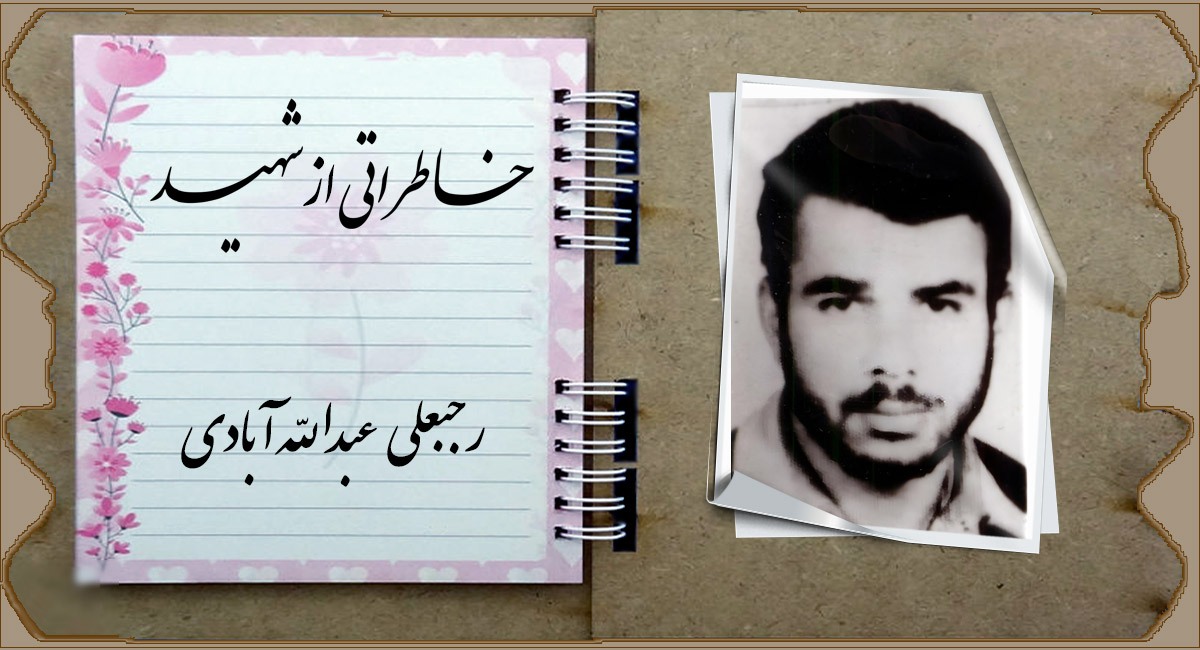 خاطراتی از شهید
رجبعلی عبدالله آبادی